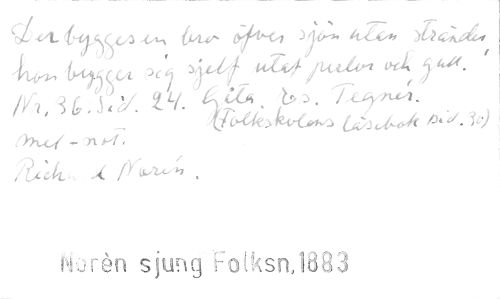 Der bygges en bro öfver sjön utan stränder,
hon bygger sig sjelf utaf perlor och gull.
Nr. 36. Sid. 24. Gåta. Es. Tegnér.
(Folkskolans läsebok sid. 30)
mel-not.
Richard Norén.
Norèn sjung Folksn, 1883